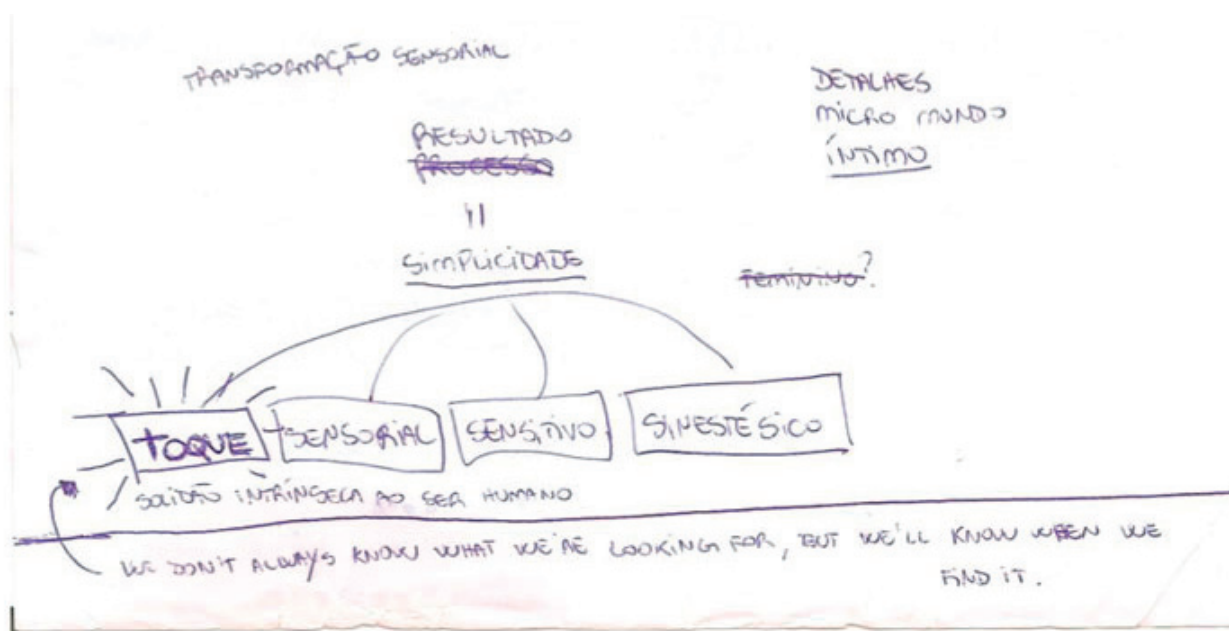 TRANSFORMAÇÃO SENSORIAL
DETALHES
MICRO MUNDO
ÍNTIMO
RESULTADO
PROCESSO
"
SIMPLICIDADE
FEMININO?
TOQUE
SENSORIAL
SENSITIVO
SINESTÉSICO
SOLIDÃO INTRÍNSECA AO SER HUMANO
WE DON'T ALWAYS KNOW WHAT WE'RE LOOKING FOR, BUT WE'LL KNOW WHEN WE
FIND IT.